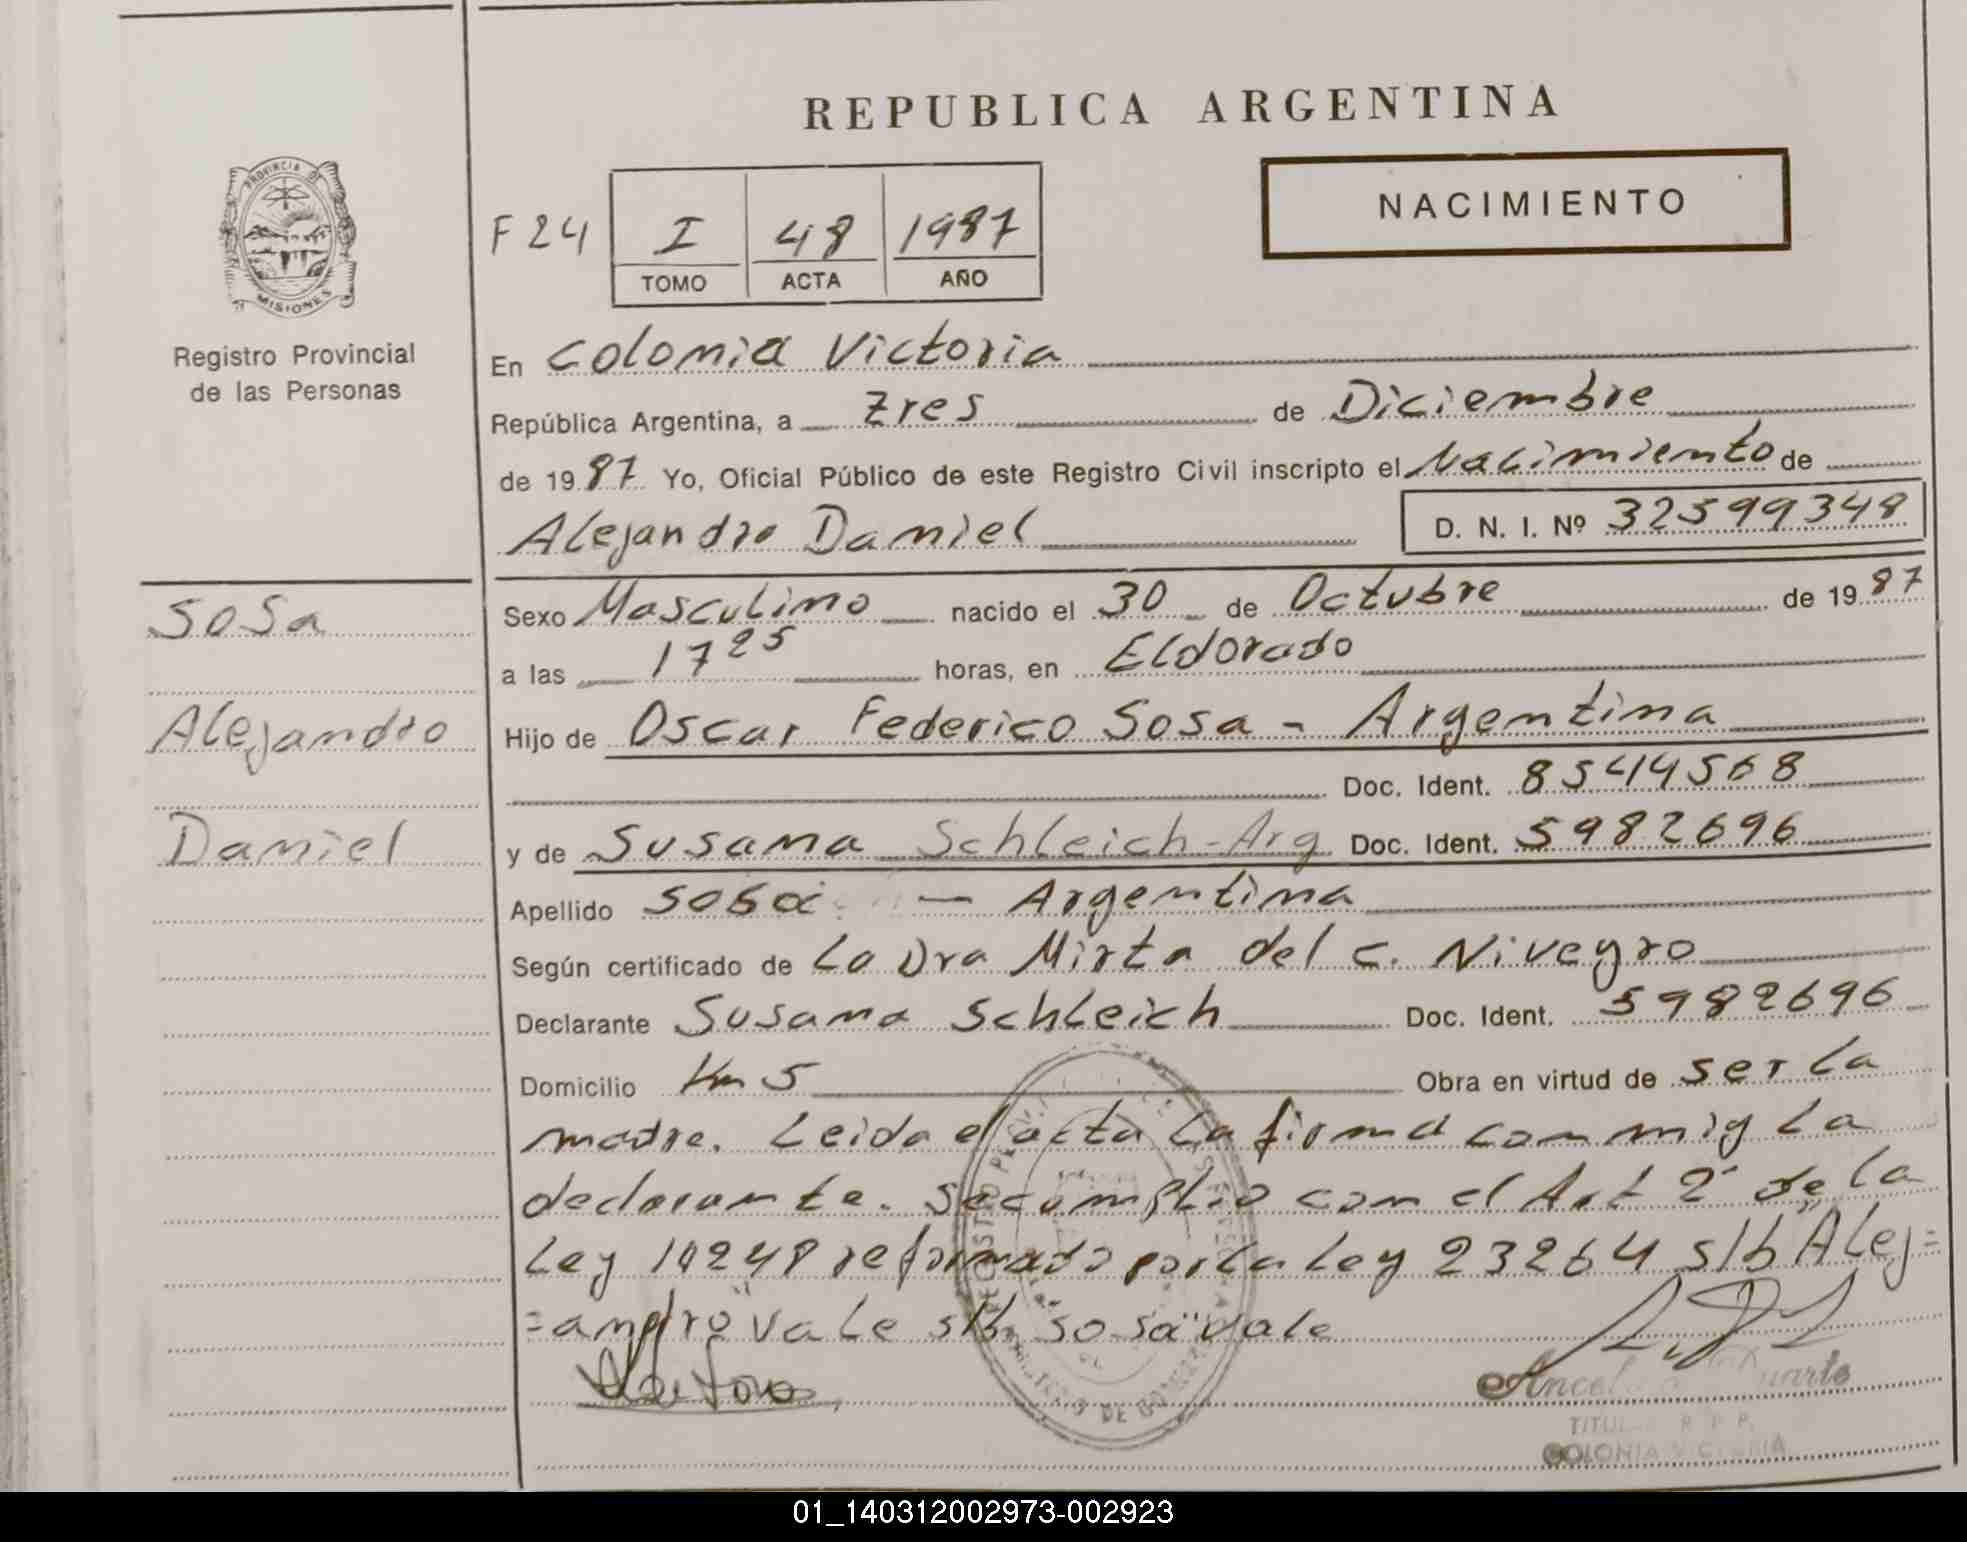 REPUBLICA ARGENTINA
NACIMIENTO
PROVINCIA DE
MISIONES
Registro Provincial
de las Personas
F 24
I 48 1987
TOMO ACTA AÑO
En Colonia Victoria
República Argentina, a tres de Diciembre
de 1987 Yo, Oficial Público de este Registro Civil inscripto el Nacimiento de
Alejandro Daniel D. N. I. Nº 32599348
Sosa
Alejandro
Daniel
Sexo Masculino nacido el 30 de Octubre de 1987
a las 1725 horas, en Eldorado
Hijo de Oscar Federico Sosa - Argentina
Doc. Ident. 8544568
y de Susana Schleich - Arg Doc. Ident. 5982696
Apellido Sosa — Argentina
Según certificado de La Dra Mirta del C. Niveyro
Declarante Susana Schleich Doc. Ident. 5982696
Domicilio Km 5 Obra en virtud de ser la
madre. Leida el acta la firma conmig la
declarante. Se cumplio con el Art 2º de la
Ley 18248 reformado por la Ley 23264 s/b "Alej=
=andro" vale s/b. "Sosa" vale
Duarte
COLONIA VICTORIA
01_140312002973-002923